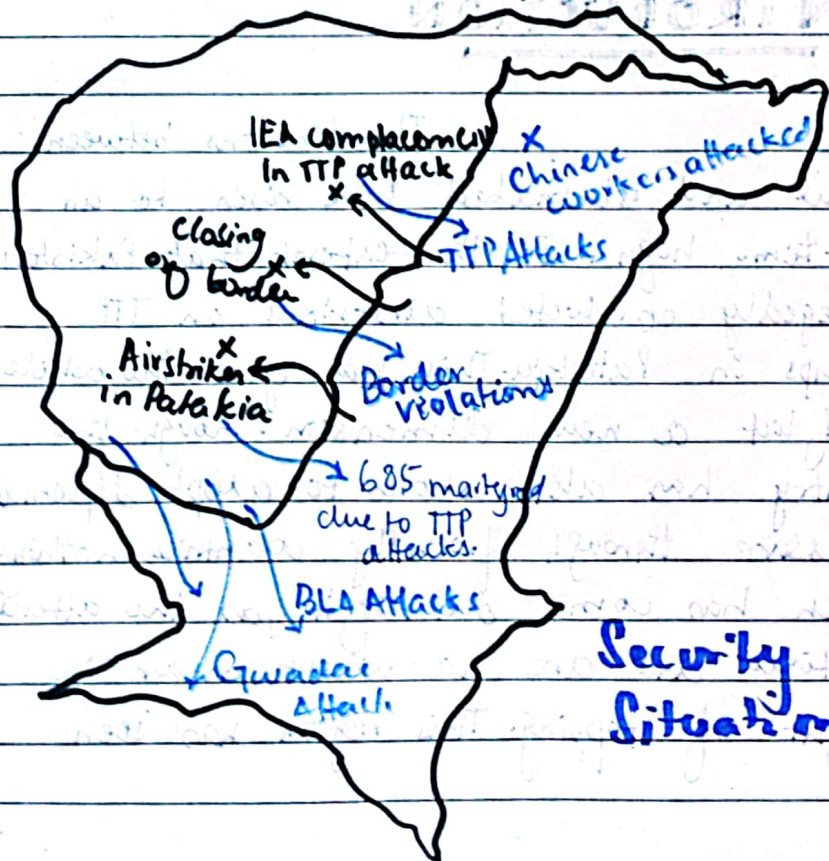 IEA complacency
in TTP attack
Chinese
workers attacked
TTP Attacks
Closing
of border
Border
violations
Airstrikes
in Patakia
685 martyred
due to TTP
attacks.
BLA Attacks
Gwadar
Attack
Security
Situation